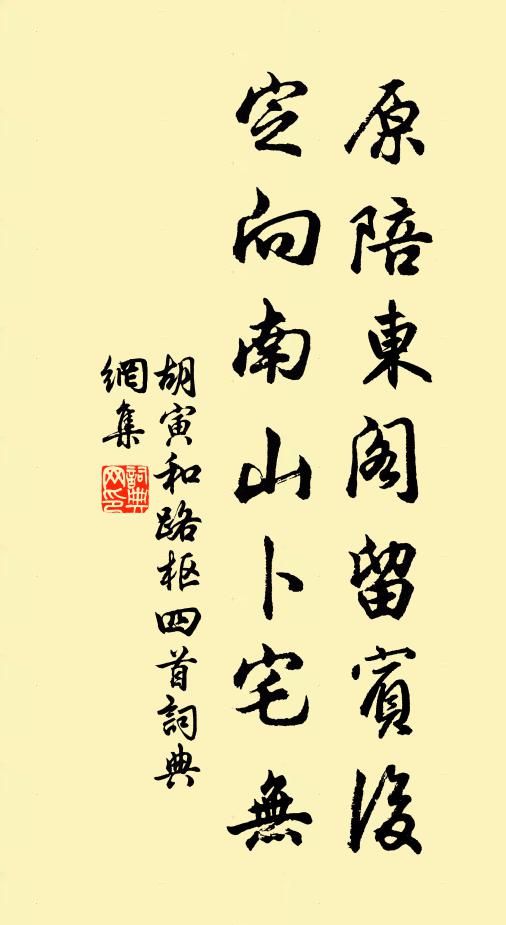 原陪東閣留賓後
定向南山卜宅無
胡寅和路樞四首詞典
網集
詞典
网印